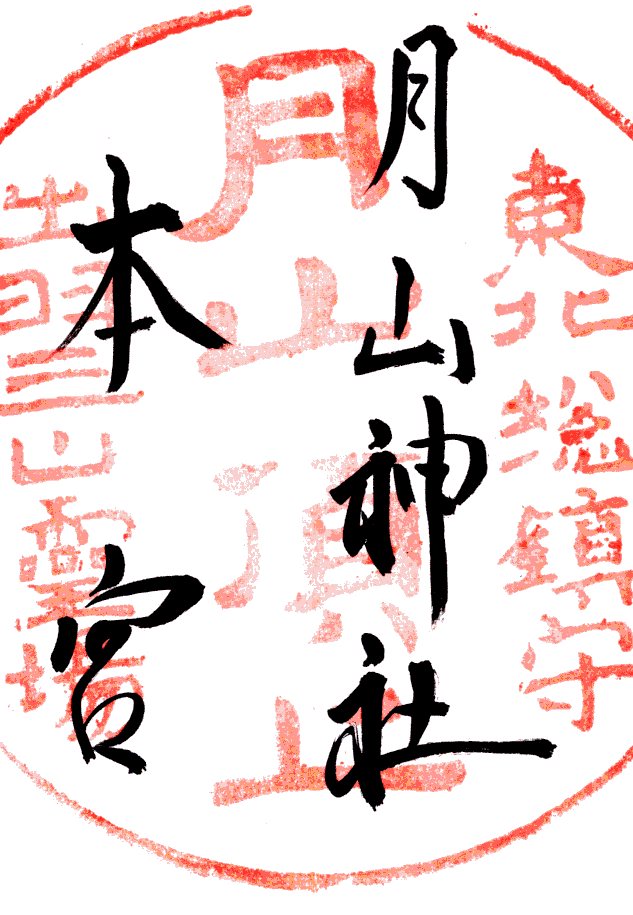 月山神社
本宮
東北総鎮守
月山頂上
出羽三山霊場